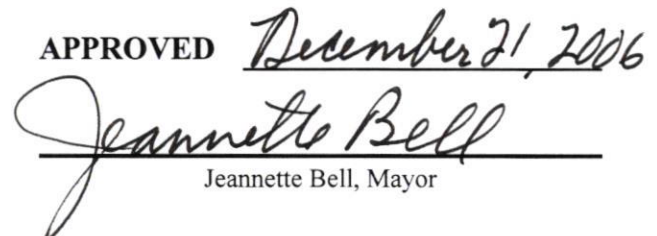 APPROVED December 21, 2006
Jeannette Bell
Jeannette Bell, Mayor